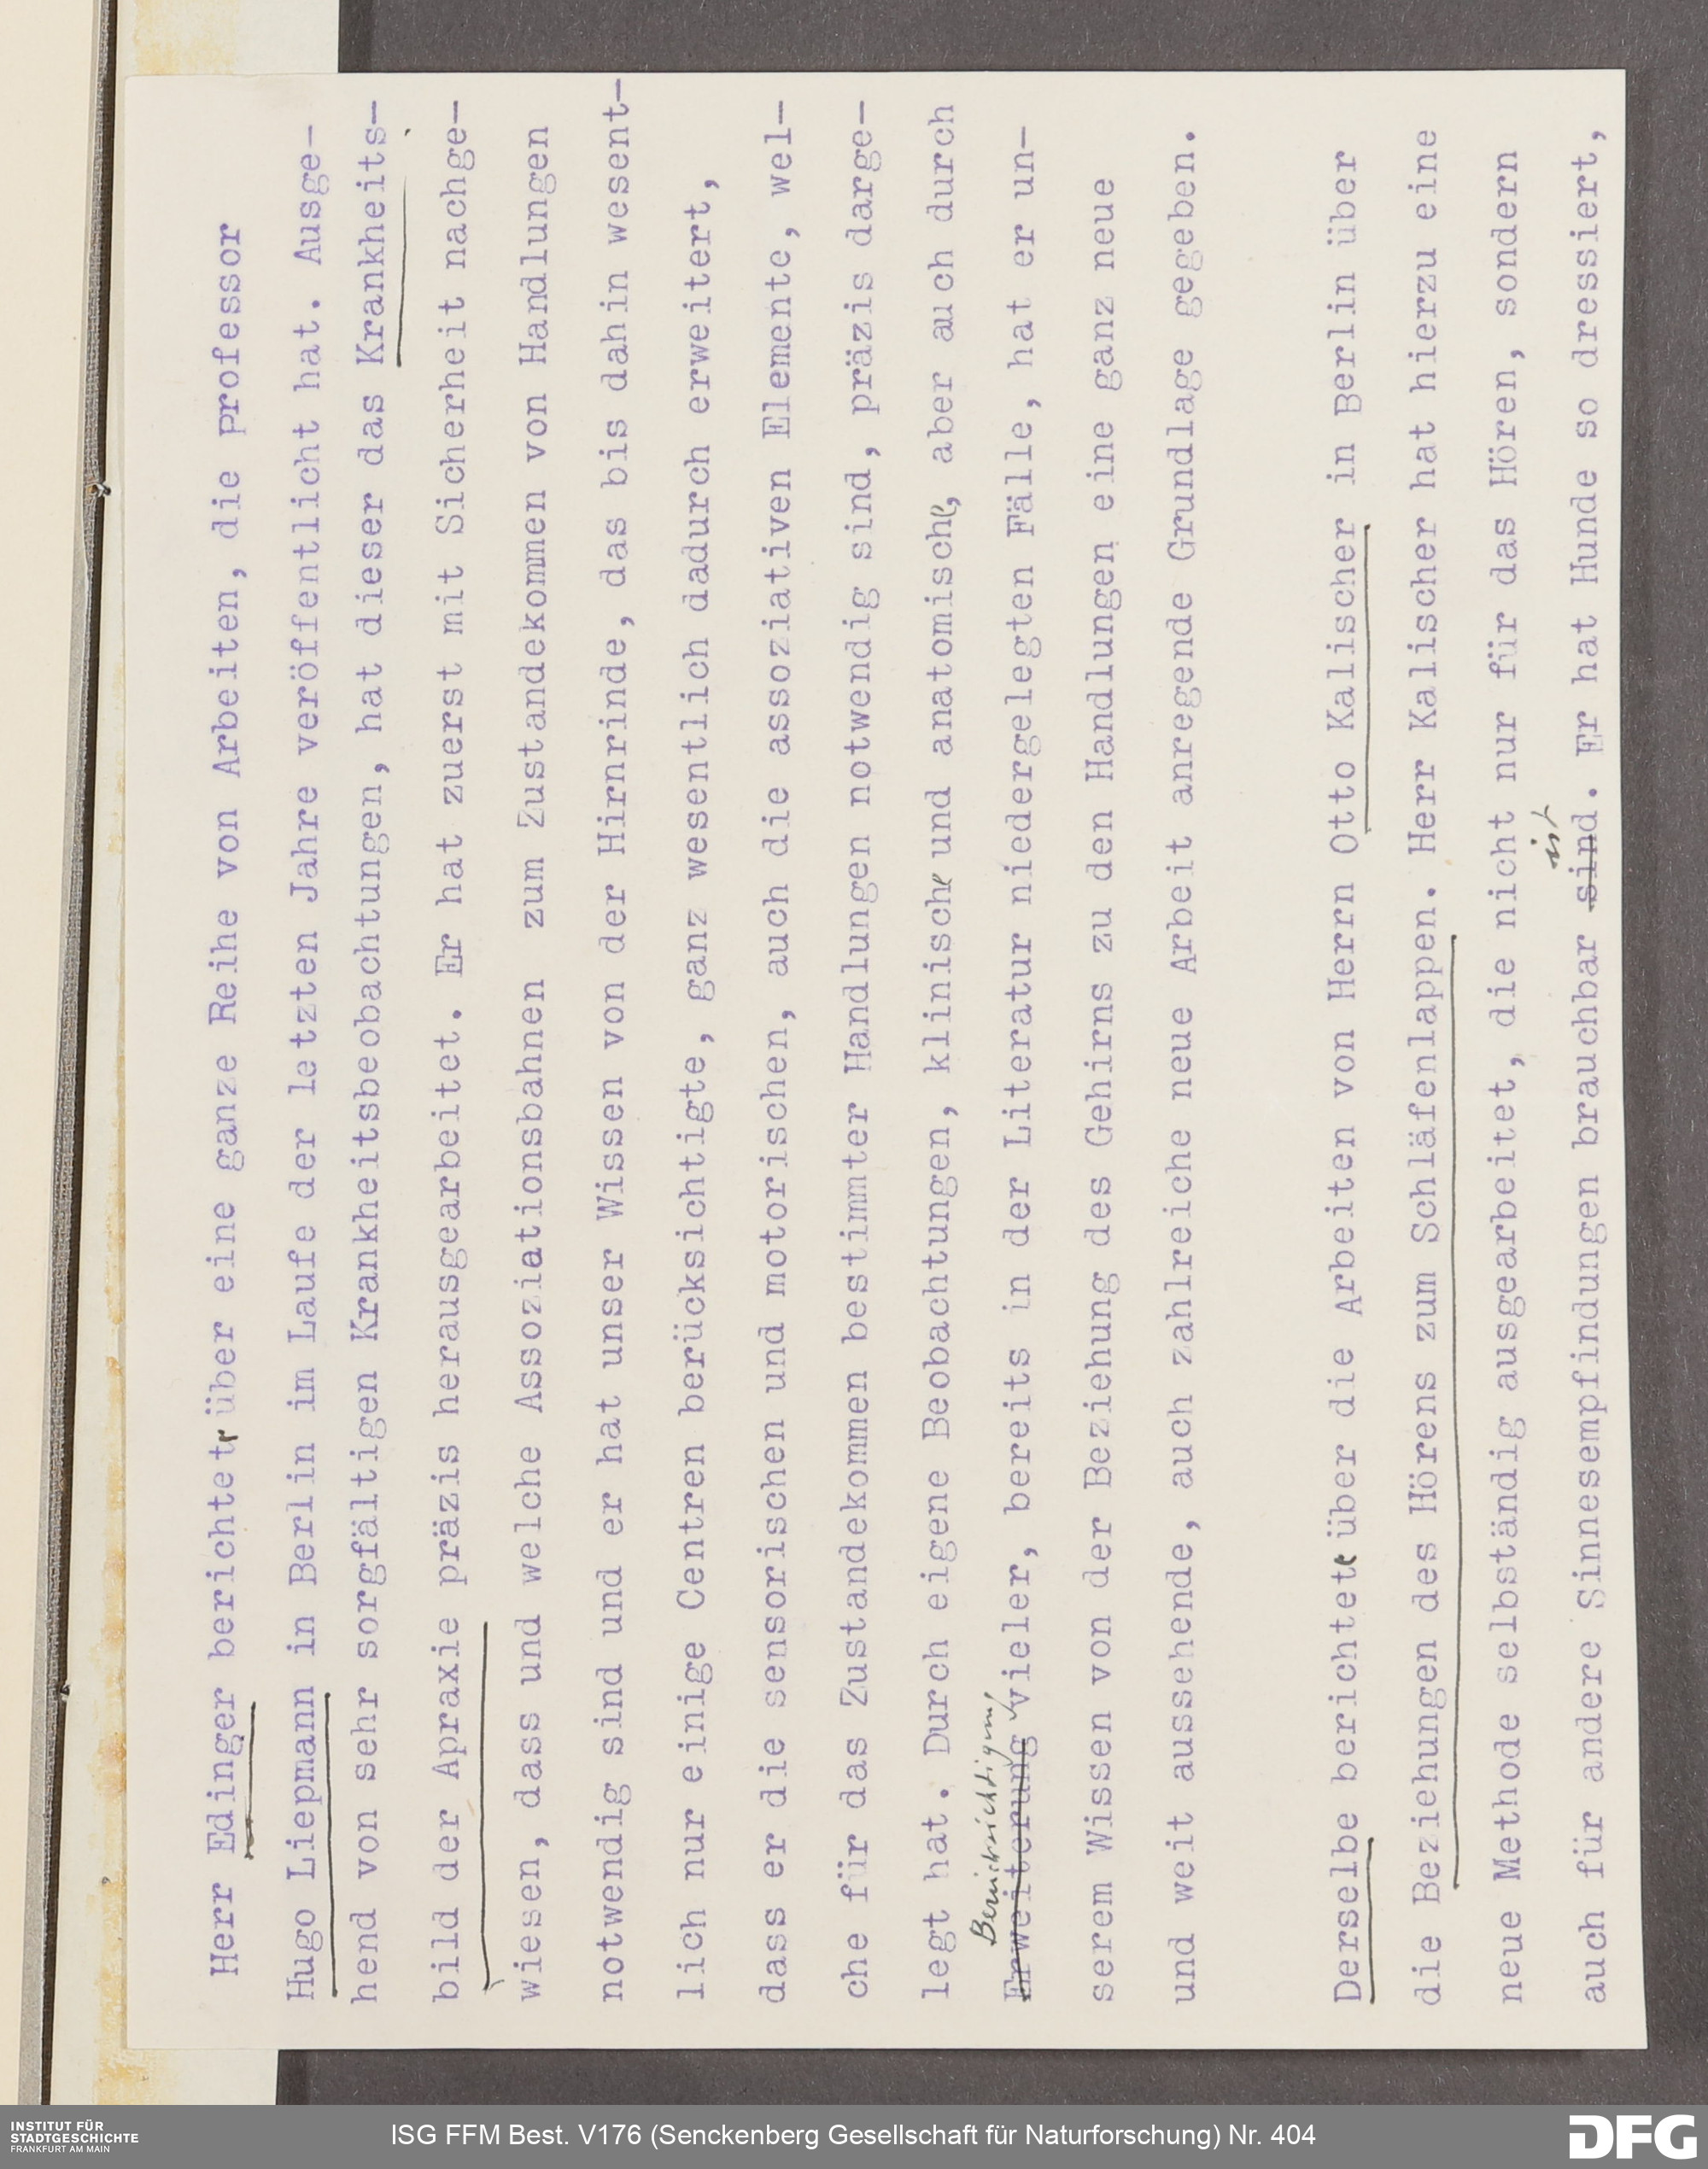 Herr Edinger berichtet über eine ganze Reihe von Arbeiten, die Professor
Hugo Liepmann in Berlin im Laufe der letzten Jahre veröffentlicht hat. Ausge-
hend von sehr sorgfältigen Krankheitsbeobachtungen, hat dieser das Krankheits-
bild der Apraxie präzis herausgearbeitet. Er hat zuerst mit Sicherheit nachge-
wiesen, dass und welche Assoziationsbahnen zum Zustandekommen von Handlungen
notwendig sind und er hat unser Wissen von der Hirnrinde, das bis dahin wesent-
lich nur einige Centren berücksichtigte, ganz wesentlich dadurch erweitert,
dass er die sensorischen und motorischen, auch die assoziativen Elemente, wel-
che für das Zustandekommen bestimmter Handlungen notwendig sind, präzis darge-
legt hat. Durch eigene Beobachtungen, klinische und anatomische, aber auch durch
Berücksichtigung
Erweiterung vieler, bereits in der Literatur niedergelegten Fälle, hat er un-
serem Wissen von der Beziehung des Gehirns zu den Handlungen eine ganz neue
und weit aussehende, auch zahlreiche neue Arbeit anregende Grundlage gegeben.
Derselbe berichtet über die Arbeiten von Herrn Otto Kalischer in Berlin über
die Beziehungen des Hörens zum Schläfenlappen. Herr Kalischer hat hierzu eine
neue Methode selbständig ausgearbeitet, die nicht nur für das Hören, sondern
ist
auch für andere Sinnesempfindungen brauchbar sind. Er hat Hunde so dressiert,
INSTITUT FÜR
STADTGESCHICHTE
FRANKFURT AM MAIN
ISG FFM Best. V176 (Senckenberg Gesellschaft für Naturforschung) Nr. 404
DFG